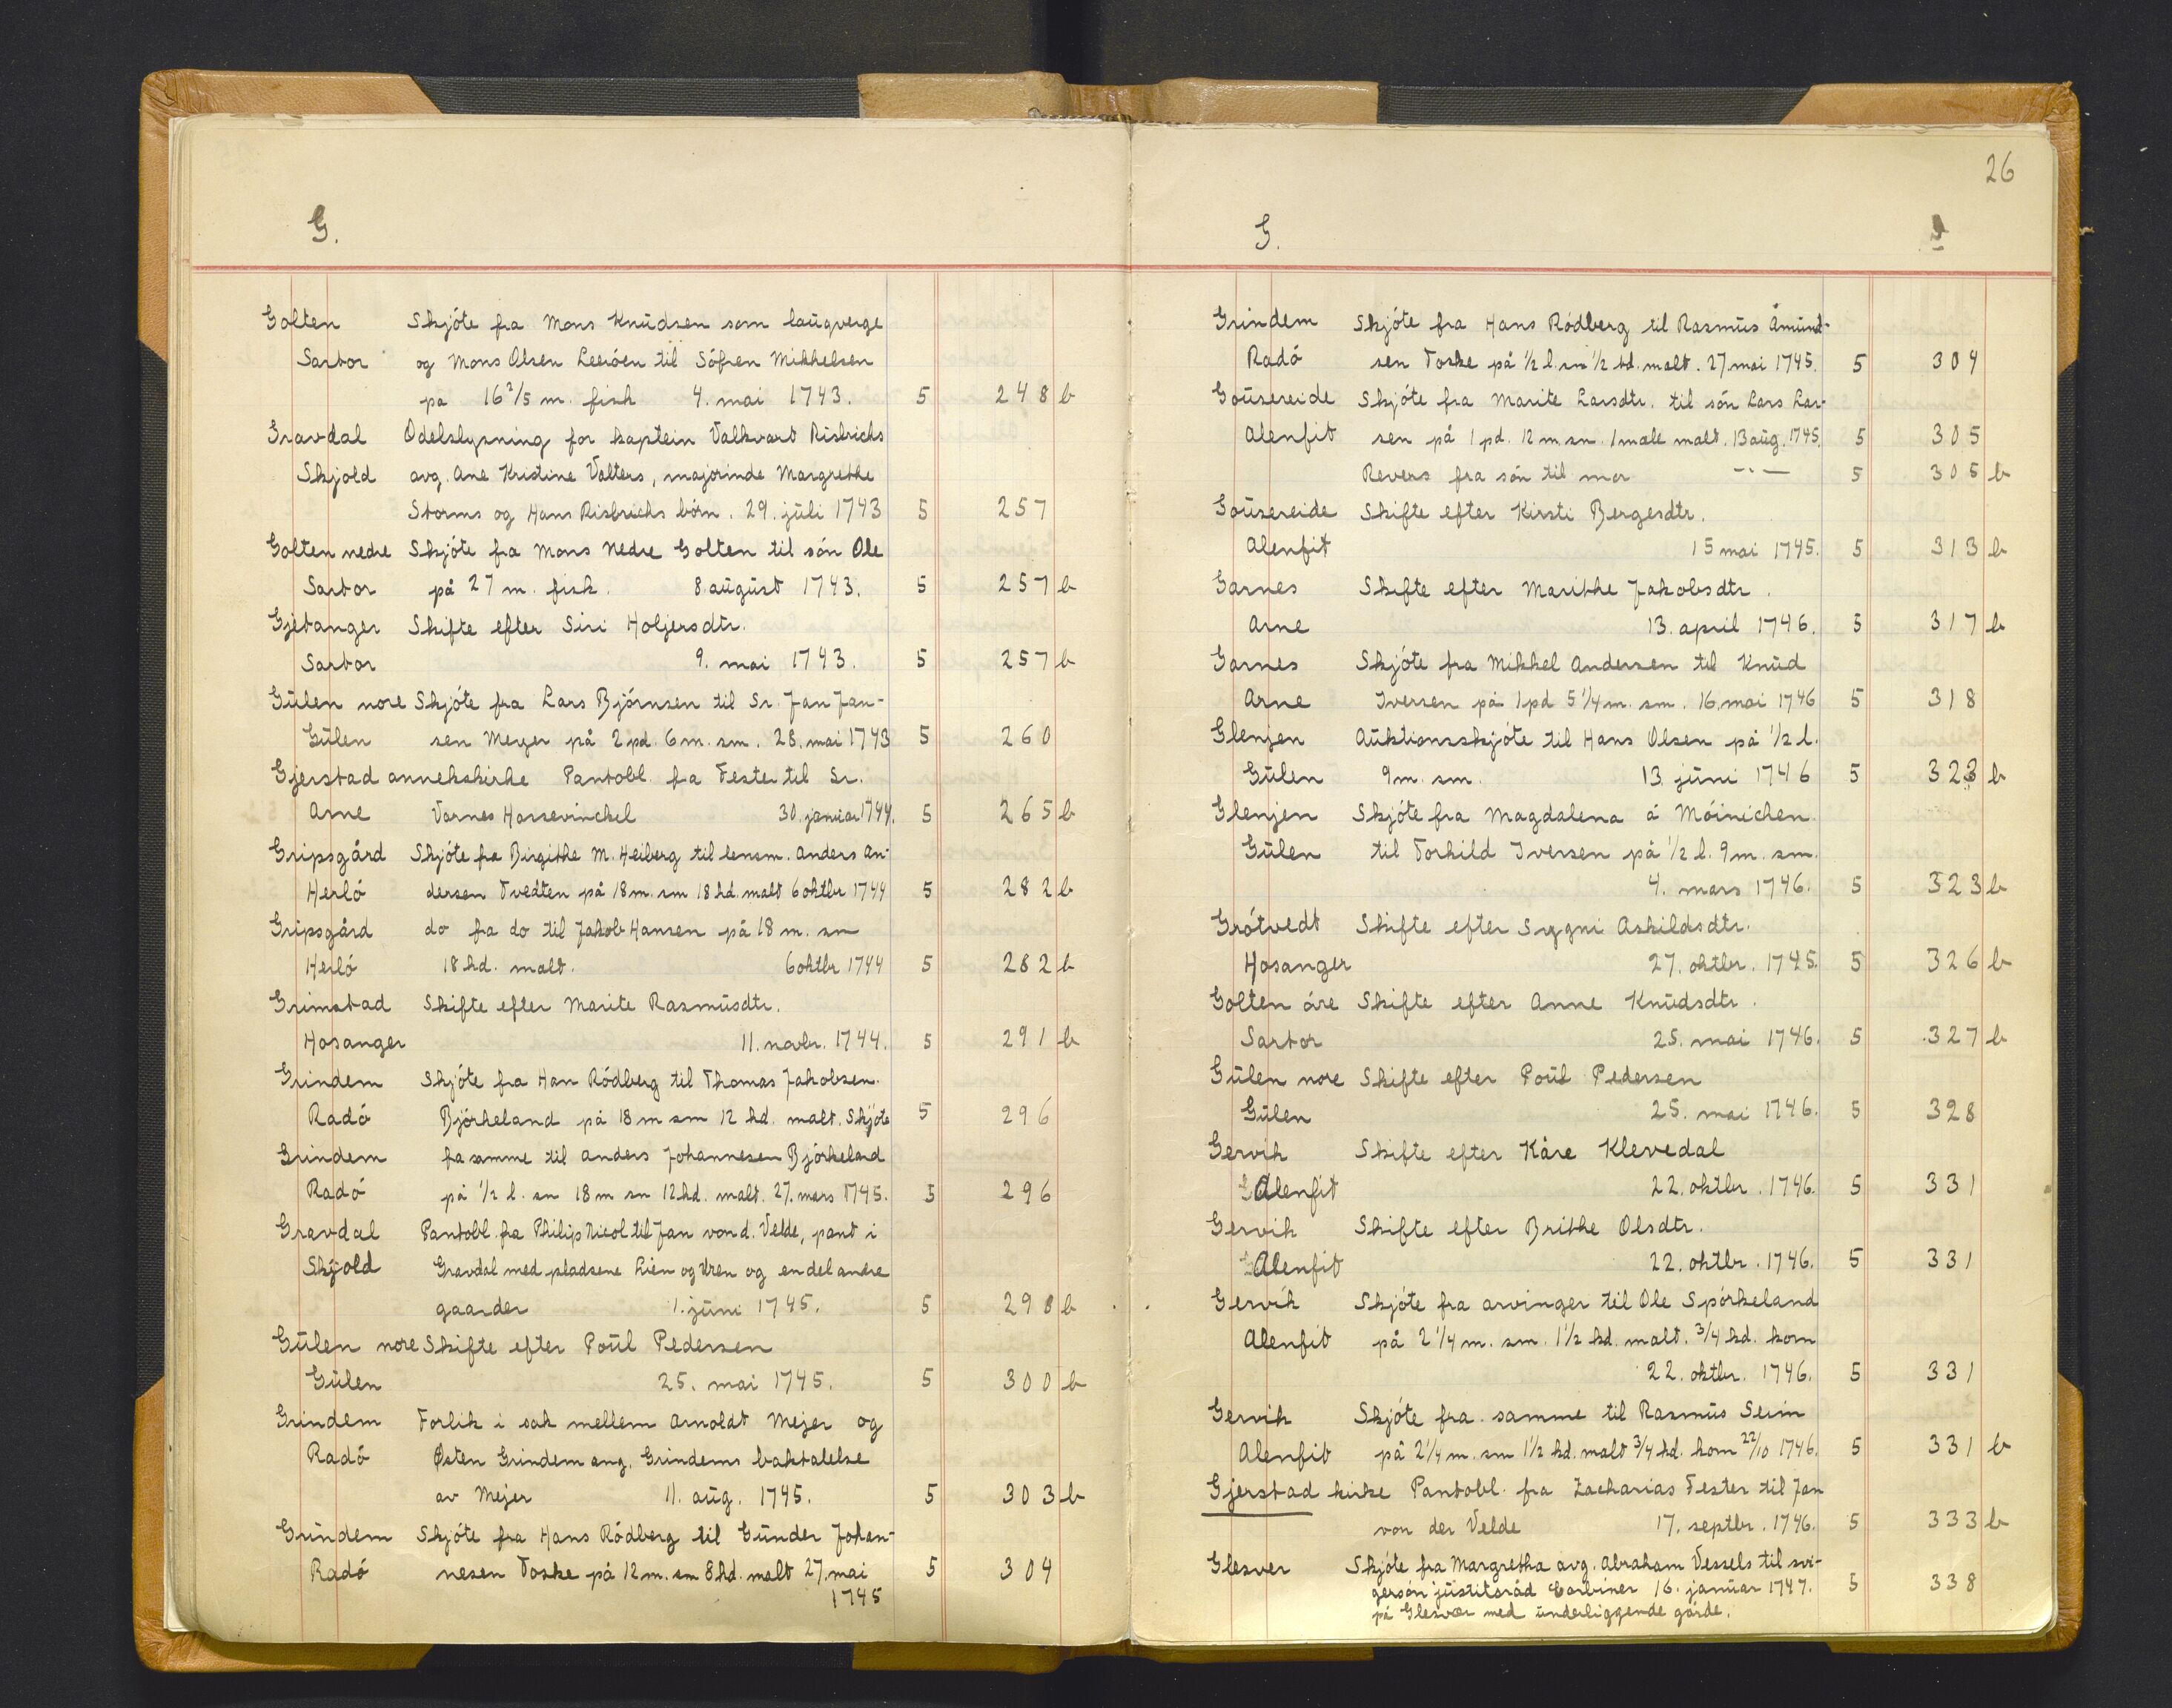 G.
Golten Skjóte fra Mons Knudsen som laugverge
Sartor og Mons Olsen Leeróen til Sófren Mikkelsen
pa 16 2/5 m. fisk 4. mai 1743. 5 248 b
Gravdal Odelslysning for kaptein Valkvart Risbrichs
Skjold avg. Ane Kristine Valters, majorinde Margrethe
Storms og Hans Risbrichs bórn. 29. juli 1743 5 257
Golten nedre Skjóte fra Mons Nedre Golten til són Ole
Sartor på 27 m. fisk. 8. august 1743. 5 257 b
Gjetanger Skifte efter Siri Holjersdtr.
Sartor 9. mai 1743. 5 257 b
Gulen nore Skjóte fra Lars Bjórnsen til Sr. Jan Jan-
Gulen sen Meyer på 2 pd. 6 m. sm. 28. mai 1743 5 260
Gjerstad annekskirke Pantobl. fra Fester til Sr.
Arne Varnes Hansevinckel 30. januar 1744. 5 265 b
Gripsgård Skjóte fra Birgithe M. Heiberg til lensm. Anders An-
Herló dersen Tvedten på 18 m. sm 18 kd. malt 6 oktbr 1744 5 282 b
Gripsgård do fra do til Jakob Hansen på 18 m. sm
Herló 18 kd. malt. 6 oktbr 1744 5 282 b
Grimstad Skifte efter Marite Rasmusdtr.
Hosanger 11. novbr. 1744. 5 291 b
Grindem Skjóte fra Han Ródberg til Thomas Jakobsen.
Radó Bjórkeland på 18 m sm 12 kd. malt. Skjóte 5 296
Grindem fra samme til Anders Johannesen Bjórkeland
Radó på 1/2 l. sm 18 m sm 12 kd. malt. 27. mars 1745. 5 296
Gravdal Pantobl. fra Philip Nicol til Jan von d. Velde, pant i
Skjold Gravdal med pladsene Lien og Uren og endel andre
gaarder 1. juni 1745. 5 298 b
Gulen nore Skifte efter Poul Pedersen
Gulen 25. mai 1745. 5 300 b
Grindem Forlik i sak mellem Arnoldt Mejer og
Radó Østen Grindem ang. Grindems baktalelse
av Mejer 11. aug. 1745. 5 303 b
Grindem Skjóte fra Hans Ródberg til Gunder Johan-
Radó nesen Toske på 12 m. sm 8 kd. malt 27. mai 5 304
1745
26
G.
Grindem Skjóte fra Hans Ródberg til Rasmus Åmund-
Radó sen Toske på 1/2 l. sm 1/2 td. malt. 27. mai 1745. 5 304
Gousereide Skjóte fra Marite Larsdtr. til són Lars Lar-
Alenfit sen på 1 pd. 12 m. sm. 1 mæle malt. 13 aug. 1745. 5 305
Revers fra són til mor –"– 5 305 b
Gousereide Skifte efter Kirsti Bergesdtr.
Alenfit 15 mai 1745. 5 313 b
Garnes Skifte efter Marithe Jakobsdtr.
Arne 13. april 1746. 5 317 b
Garnes Skjóte fra Mikkel Andersen til Knud
Arne Iversen på 1 pd 5 1/4 m. sm. 16. mai 1746 5 318
Glenjen Auktionsskjóte til Hans Olsen på 1/2 l.
Gulen 9 m. sm. 13. juni 1746 5 323 b
Glenjen Skjóte fra Magdalena á Móinichen
Gulen til Torkild Iversen på 1/2 l. 9 m. sm.
4. mars 1746. 5 323 b
Grótvedt Skifte efter Sygni Askildsdtr.
Hosanger 27. oktbr. 1745. 5 326 b
Golten óre Skifte efter Anne Knudsdtr.
Sartor 25. mai 1746. 5 327 b
Gulen nore Skifte efter Poul Pedersen
Gulen 25. mai 1746. 5 328
Gervik Skifte efter Kåre Klevedal
Alenfit 22. oktbr. 1746. 5 331
Gervik Skifte efter Brithe Olsdtr.
Alenfit 22. oktbr. 1746. 5 331
Gervik Skjóte fra arvinger til Ole Spórkeland
Alenfit på 2 1/4 m. sm. 1 1/2 kd. malt. 3/4 kd. korn
22. oktbr. 1746. 5 331
Gervik Skjóte fra samme til Rasmus Seim
Alenfit på 2 1/4 m. sm 1 1/2 kd. malt 3/4 kd. korn 22/10 1746. 5 331 b
Gjerstad kirke Pantobl. fra Zacharias Fester til Jan
von der Velde 17. septbr. 1746. 5 333 b
Glesver Skjóte fra Margretha avg. Abraham Vessels til svi-
gersón justitsråd Carbiner 16. januar 1747. 5 338
på Glesvær med underliggende gårde.